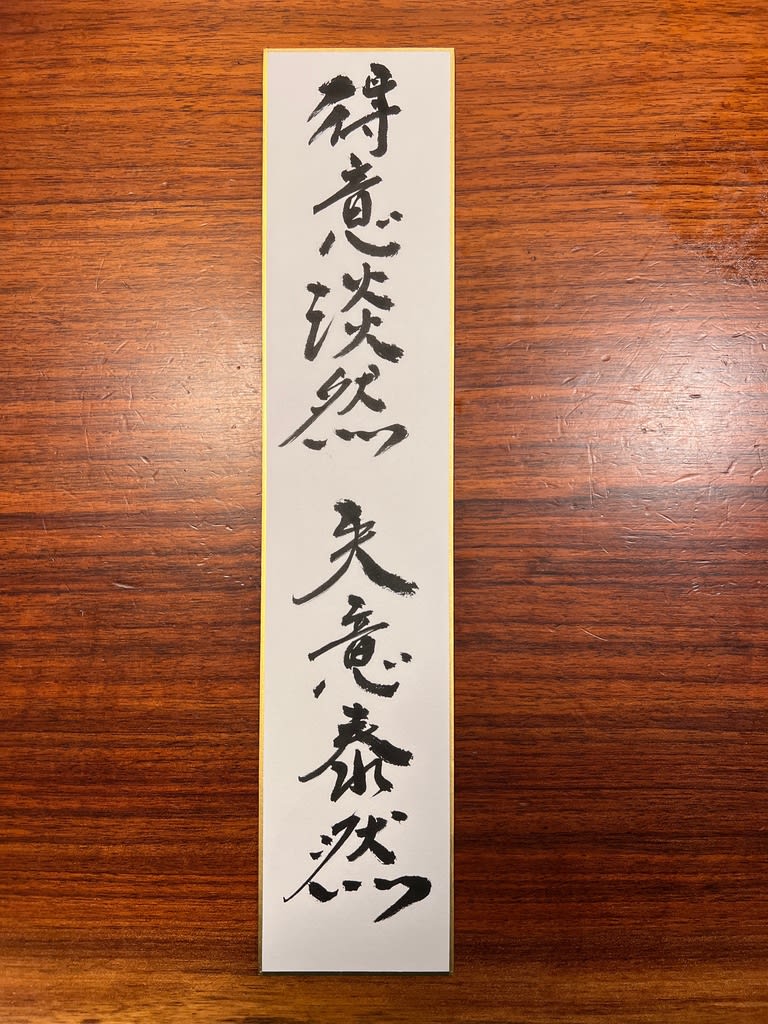 得意淡然 失意泰然